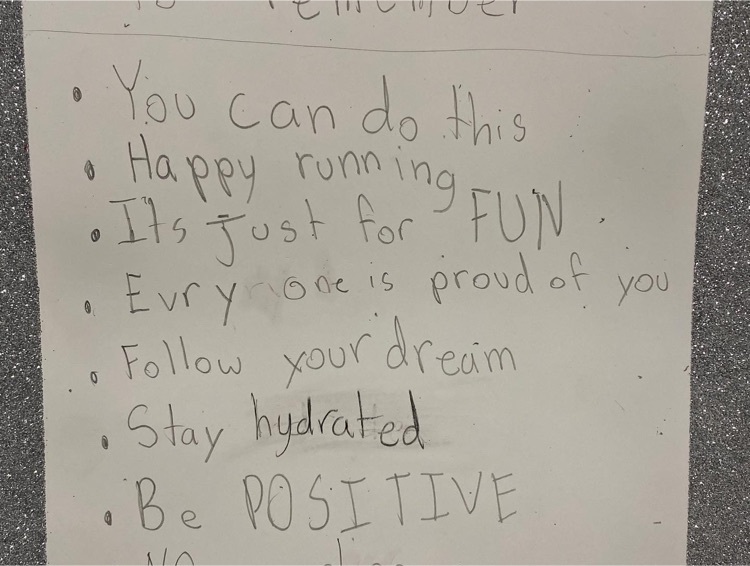 to remember
• You can do this
• Happy running
• Its Just for FUN
• Evry one is proud of you
• Follow your dream
• Stay hydrated
• Be POSITIVE
NO